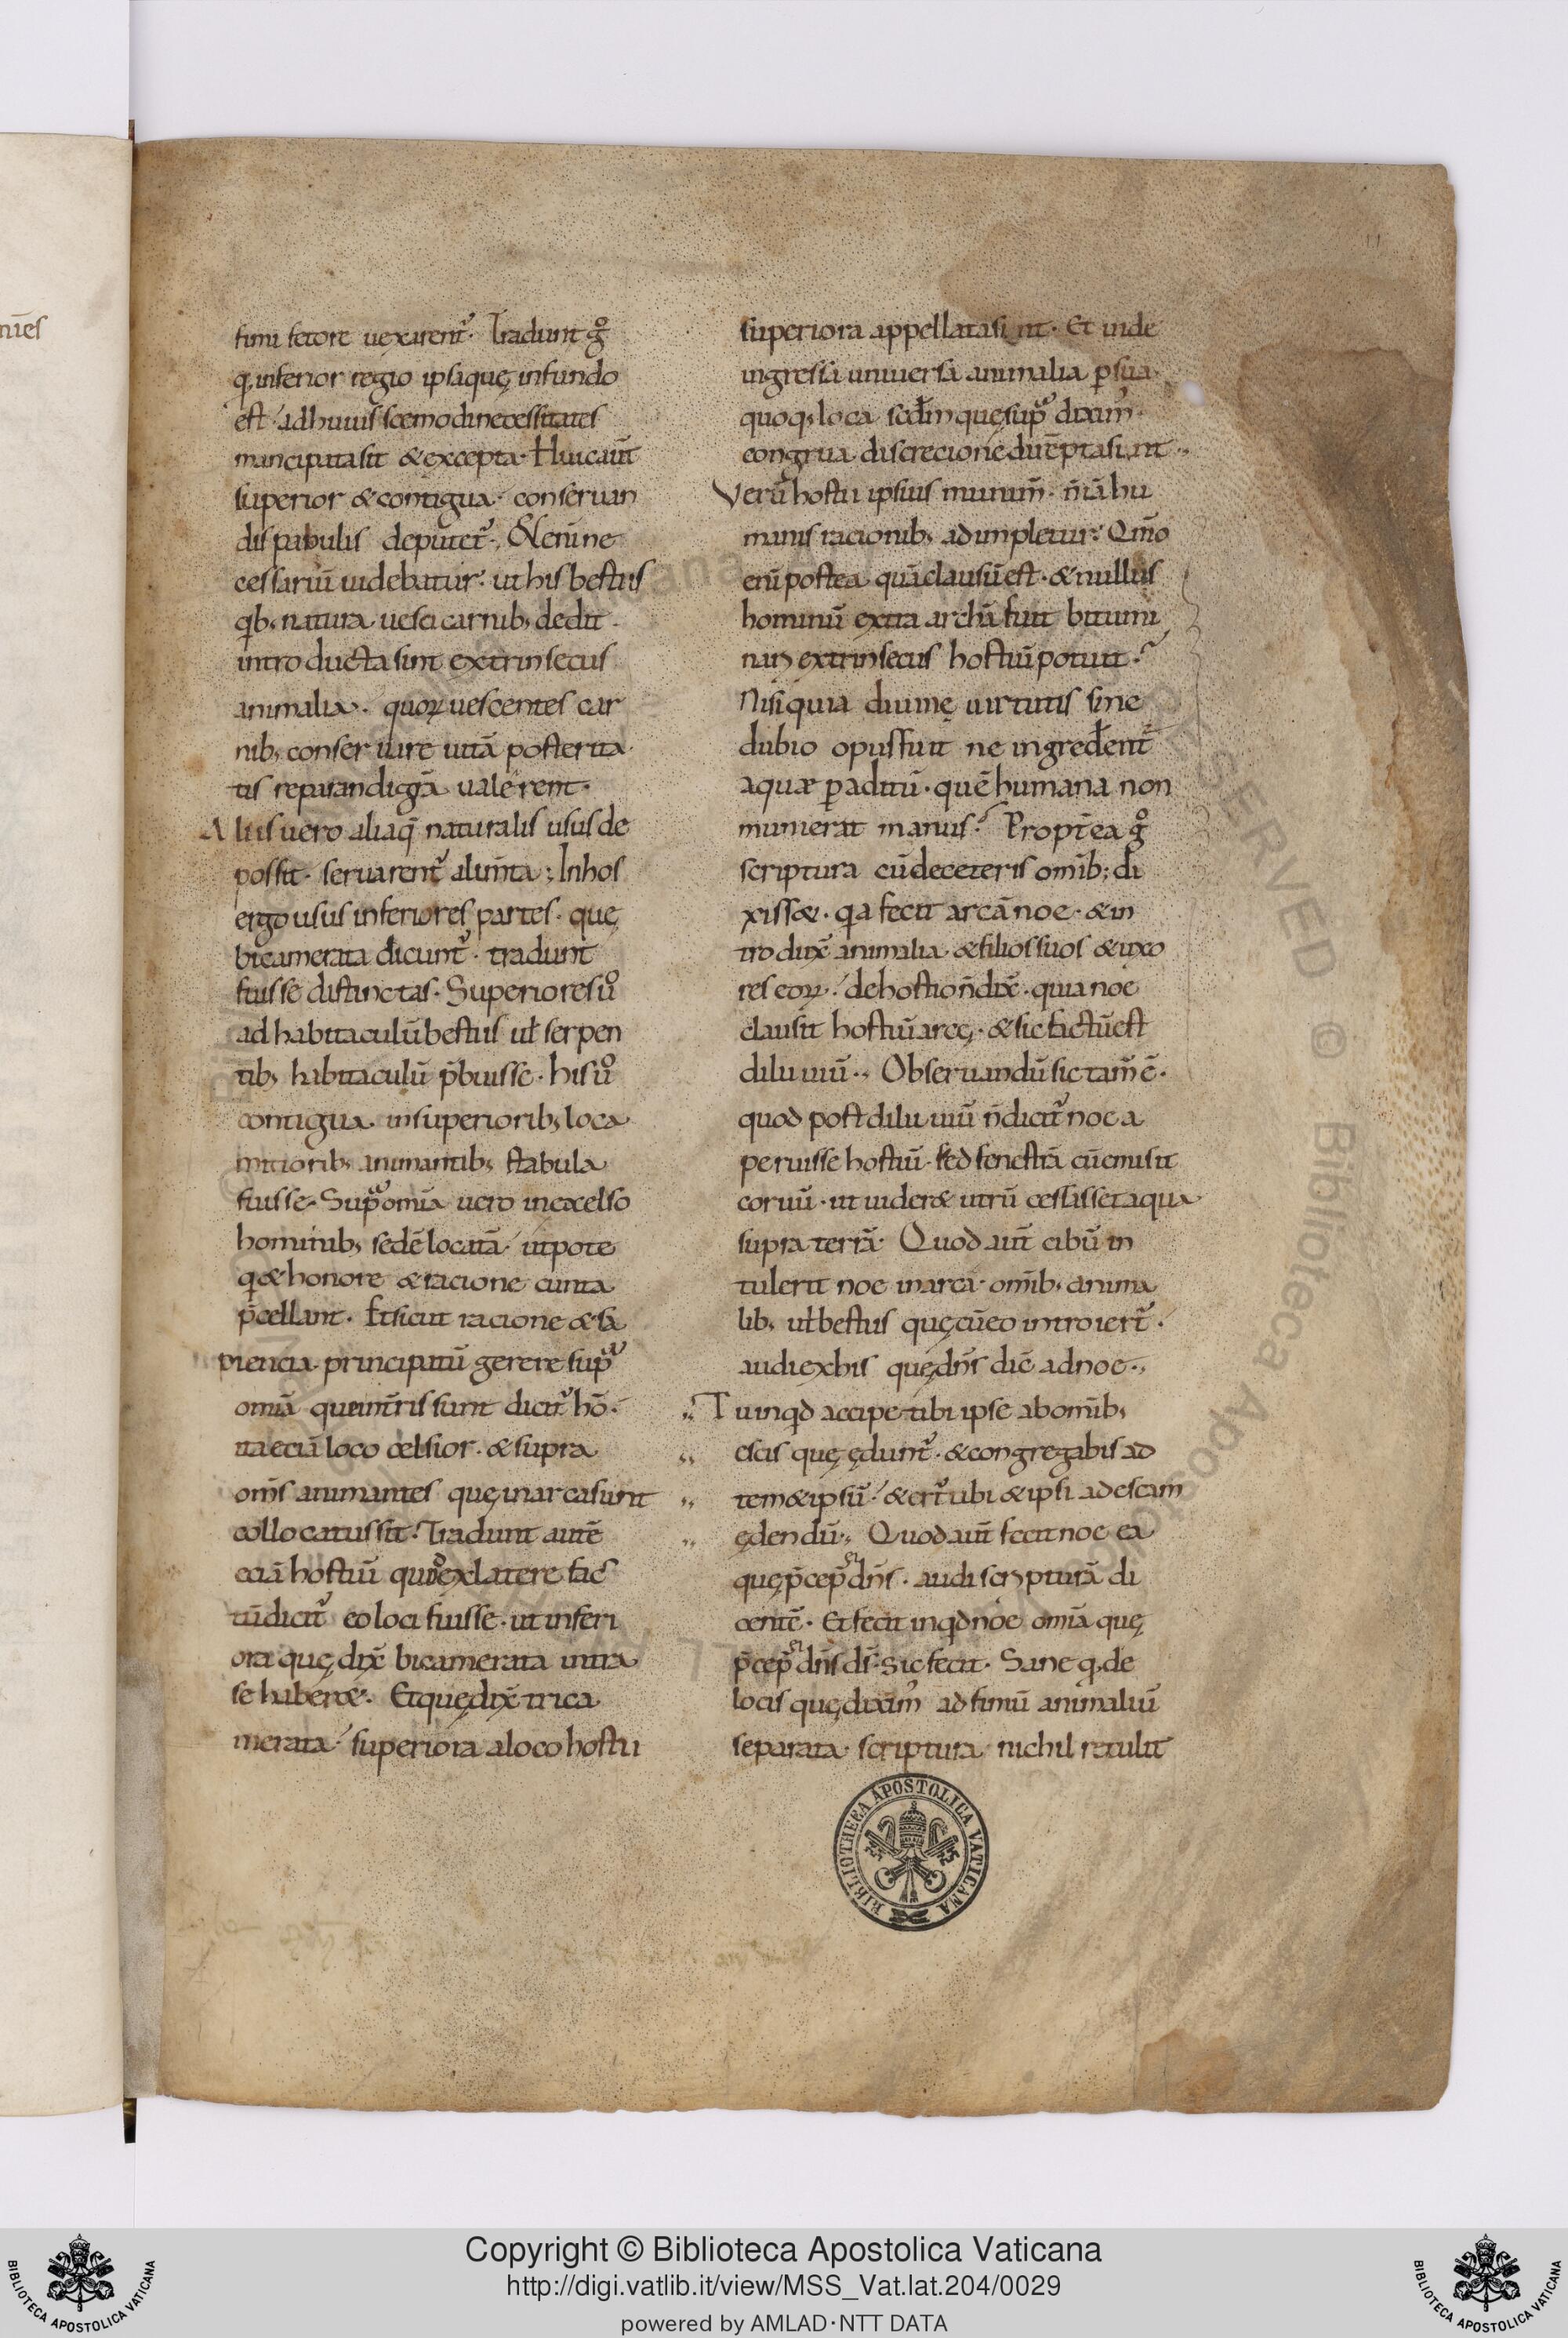 nīes
11
fimi fetore uexarent᷑. Tradunt gͦ
q; inferior regio ipsaquę infundo
est adhuiuscemodinecessitates
mancipatasit &excepta. Huicaut̄
superior &contigua conseruan
dis pabulis deputet᷑. &enīne
cessariū uidebatur. ut his bestiis
qib; natura uesci carnib; dedit.
intro ducta sint extrinsecus
animalia. quoꝝ uescentes car
nib; conseruare uitā posterita
tis reparandigr̄a ualerent.
Aliis uero aliaq̄ naturalis usus de
possit. seruarent᷑ alim̄ta; Inhos
ergo usus inferiores partes. quę
bicamerata dicunt᷑. tradunt
fuisse distinctas. Superiores uͦ
ad habitaculū bestiis ul̄ serpen
tib; habitaculū p̄buisse. his uͦ
contigua. insuperiorib; loca
mitiorib; animantib; stabula
fuisse. Supᷓ omīa uero inexcelso
hominib; sedē locatā utpote
qi & honore & racione cunta
p̄cellant. Etsicut racione & sa
piencia principatū gerere supᷓ
omīa que int̄ris sunt dicit᷑ hō.
ita eciā loco celsior. & supra
om̄s animantes quę inarca sunt
collocatus sit. Tradunt autē
eciā hostiū quod exlatere fac
tūdicit᷑ eo loci fuisse. ut inferi
ora quę dix̄ bicamerata intra
se haber&. Etquędix̄ trica
merata superiora aloco hostii
superiora appellatasint. Et inde
ingressa uniuersa animalia ꝑ sua
quoq; loca sc̄dm quę supᷓ dixim᷒
congrua discrecione dirēptasunt.
Verū hostii ipsius munim̄. n̄ iā hu
manis racionib; adimpletur. Qm̄o
enī postea quā clausū est. & nullus
hominū extra archā fuit bitumi
nari extrinsecus hostiū potuit.
Nisi quia diuinę uirtutis sine
dubio opus fuit ne ingred̄ent᷑
aquæ ꝑ aditū. quē humana non
munierat manus. Propt̄ea gͦ
scriptura cū deceteris omīb; di
xiss&. qia fecit arcā noe. & in
trodux̄ animalia & filios suos & uxo
res eoꝝ. dehostio n̄ dix̄. quia noe
clausit hostiū arcę. & sic factū est
diluuiū. Obseruandū sic tam̄ ē.
quod post diluuiū n̄ dicit᷑ noe a
peruisse hostiū. sed fenestrā cū emisit
coruū. ut uider& utrū cessisset aqua
supra terrā. Quod aut̄ cibū in
tulerit noe inarcā omīb; anima
lib; ul̄ bestiis quę cū eo introiert᷑.
audi exhis quę dn̄s dic̄ adnoe.
Tu inqid accipe tibi ipse abomīb;
escis quę ędunt᷑. & congregabis ad
tem&ipsū. & ert᷑ tibi & ipsi ad escam
ędendū. Quod aut̄ fecit noe ea
quę p̄cep̄ ei dn̄s. audi scripturā di
centē. Et fecit inqid noe omīa quę
p̄cep̄ ei dn̄s ds̄. sic fecit. Sane q; de
locis quę dixim᷒ ad fimū animaliū
separata scriptura nichil retulit
BIBLIOTHECA APOSTOLICA VATICANA
Copyright © Biblioteca Apostolica Vaticana
http://digi.vatlib.it/view/MSS_Vat.lat.204/0029
powered by AMLAD·NTT DATA
BIBLIOTECA APOSTOLICA VATICANA
BIBLIOTECA APOSTOLICA VATICANA